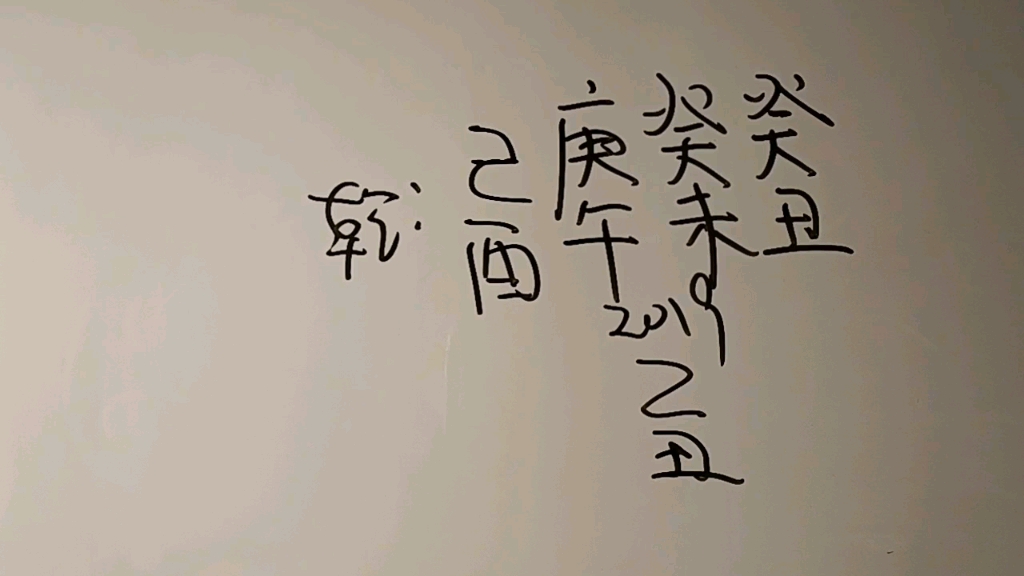 乾：己庚癸癸
酉午未丑
2019
乙
丑